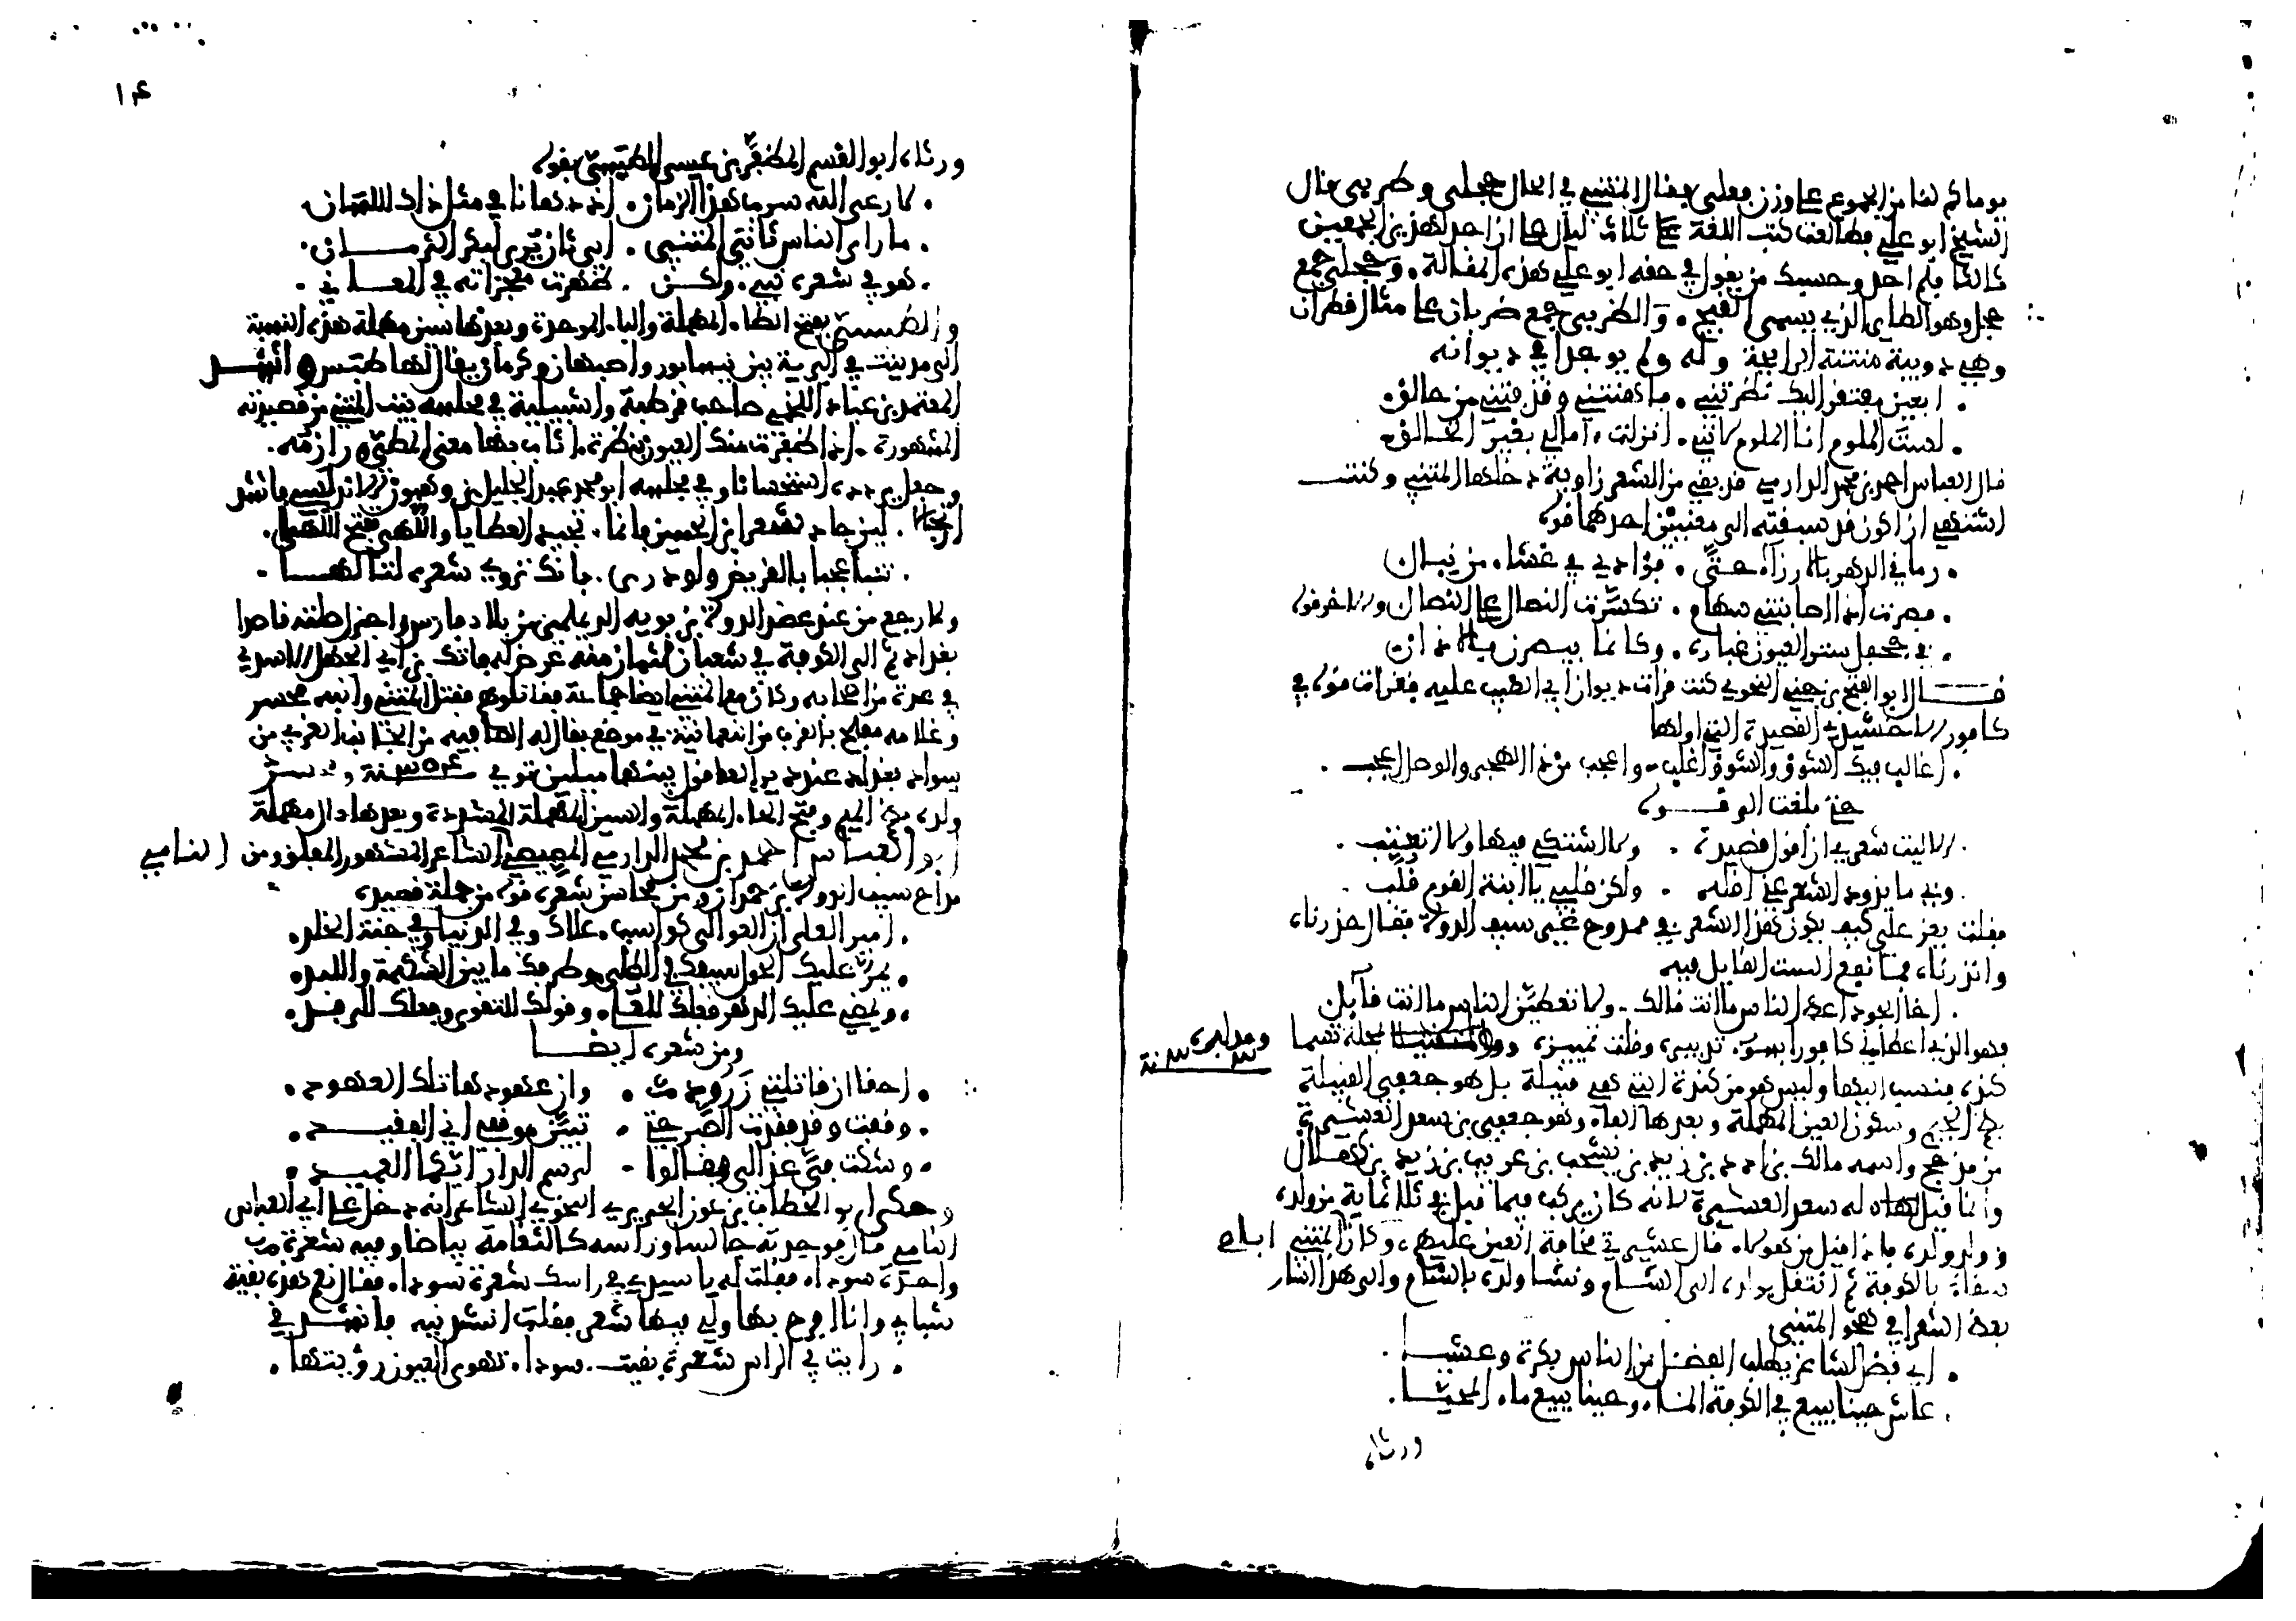 يوما كم لنا من الجموع على وزن فعلى فقال المتنبي في الحال حجلى وظربى قال
الشيخ ابو علي فطالعت كتب اللغة ثلاث ليال على ان اجد لهذين الجمعين
ثالثا فلم اجد وحسبك من يقول في حقه ابو علي هذه المقالة. وحجلى جمع
حجل وهو الطاير الذي يسمى القبج. والظربى جمع ظربان على مثال قطران
وهي دويبة منتنة الرايحة وله ولم يوجدا في ديوانه
. ابعين مفتقر اليك نظرتني . فاهنتني وقذفتني من حالق.
. لست الملوم انا الملوم لانني . انزلت امالي بغير الخالق.
قال العباس احمد بن محمد الدارمي قد بقي من الشعر زاوية دخلها المتنبي وكنت
اشتهي ان اكون قد سبقته الى معنيين احدهما قوله
. رماني الدهر بالارزاء حتى . فؤادي في غشاء من نبال
. فصرت اذا اصابتني سهام . تكسرت النصال على النصال والاخر قوله
. في جحفل ستر العيون غباره . وكانما يبصرن بالاذان
قال ابو الفتح بن جني النحوي كنت قرات ديوان ابي الطيب عليه فقرات قوله في
كافور الاخشيدي القصيدة التي اولها
. اغالب فيك الشوق والشوق اغلب . واعجب من ذا الهجر والوصل اعجب .
حتى بلغت الى قوله
. الا ليت شعري ان اقول قصيدة . ولا اشتكي فيها ولا اتعتب .
. وبي ما يزود الشعر عني اقله . ولكن قلبي يا ابنة القوم قلب .
فقلت يعز علي كيف يكون هذا الشعر في ممدوح غير سيف الدولة فقال حذرناه
وانذرناه فما نفع الست القايل فيه
. اخا الجود اعط الناس ما انت مالك . ولا تعطين الناس ما انت قايل
فهو الذي اعطاني كافورا بسوء تدبيره وقلت تمييزه ومولده سنة
كندة فنسب اليها وليس هو من كندة التي هي قبيلة بل هو جعفي القبيلة
بضم الجيم وسكون العين المهملة وبعدها الفاء وهو جعفي بن سعد العشيرة
من مذحج واسمه مالك بن ادد بن زيد بن يشجب بن عريب بن زيد بن كهلان
وانما قيل له سعد العشيرة لانه كان يركب فيما قيل في ثلاثماية من ولده
وولد ولده فاذا قيل من هولاء قال عشيرتي مخافة العين عليهم وكان المتنبي ابوه
سقاء بالكوفة ثم انتقل بولده الى الشام ونشا ولده بالشام والى هذا اشار
بعض الشعرا في هجو المتنبي
. اي فضل لشاعر يطلب الفضل من الناس بكرة وعشيا .
. عاش حينا يبيع في الكوفة الماء وحينا يبيع ماء المحيا .
ورثاه
١٤
ورثاه ابو القسم المظفر بن عيسى الطبسي بقوله
. لا رعى الله سرب هذا الزمان . اذ دهانا في مثل ذاك اللسان.
. ما راى الناس ثاني المتنبي . اي ثان يرى لبكر الزمان .
. هو في شعره نبي ولكن . ظهرت معجزاته في المعاني .
والطبسي بفتح الطاء المهملة والباء الموحدة وبعدها سين مهملة هذه النسبة
الى مدينة في البرية بين نيسابور واصبهان وكرمان يقال لها طبس وانشد
المعتمد بن عباد اللخمي صاحب قرطبة واشبيلية في مجلسه بيت المتنبي من قصيدته
المشهورة . اذا ظفرت منك العيون بنظرة . اثاب بها معيي المطي ورازمه.
وجعل يردده استحسانا وفي مجلسه ابو محمد عبد الجليل بن وهبون الاندلسي فانشد
ارتجالا . لين جاد شعر ابن الحسين فانما . تجيد العطايا واللهى تفتح اللهى.
. تنبا عجبا بالقريض ولو درى . بانك تروي شعره لتالها .
ولما رجع من عند عضد الدولة بن بويه الديلمي من بلاد فارس واخذ طلقته قاصدا
بغداد ثم الى الكوفة في شعبان لثمان منه عرض له فاتك بن ابي الجهل الاسدي
في عدة من اصحابه وكان مع المتنبي ايضا جماعة فقاتلوهم فقتل المتنبي وابنه محسد
وغلامه مفلح بالقرب من النعمانية في موضع يقال له الصافية من الجانب الغربي من
سواد بغداد عند دير العاقول بينهما ميلين توفي في سنة ٣٥٤
ولده بضم الميم وفتح الحاء المهملة والسين المهملة المشددة وبعدها دال مهملة
ابو العباس احمد بن محمد الدارمي المصيصي الشاعر المشهور المعروف النامي
مداح سيف الدولة بن حمدان ومن محاسن شعره قوله من جملة قصيدة
. امير العلى ان العوالي كواسب . علاك وفي الدنيا وفي جنة الخلد.
. يمر عليك الحول سيفك في الطلى وطرفك ما بين الشكيمة واللبد.
. ويمضي عليك الدهر فعلك للعلى . وقولك للتقوى وجعلك للرفد.
ومن شعره ايضا
. احقا ان قاتلتي زرود . وان عهودها تلك العهود.
. وقفت وقد فقدت الصبر حتى . تبين موقفي اني الفقيد.
. وشكت في عذالي فقالوا . لرسم الدار ايكما العميد.
وحكى ابو الخطاب بن عون الحريري النحوي الشاعر انه دخل على ابي العباس
النامي قال فوجدته جالسا وراسه كالثغامة بياضا وفيه شعرة
واحدة سوداء فقلت له يا سيدي في راسك شعرة سوداء فقال نعم هذه بقية
شبابي وانا افرح بها ولي فيها شعر فقلت انشدنيه فانشدني
. رايت في الراس شعرة بقيت . سوداء تهوى العيون رؤيتها .